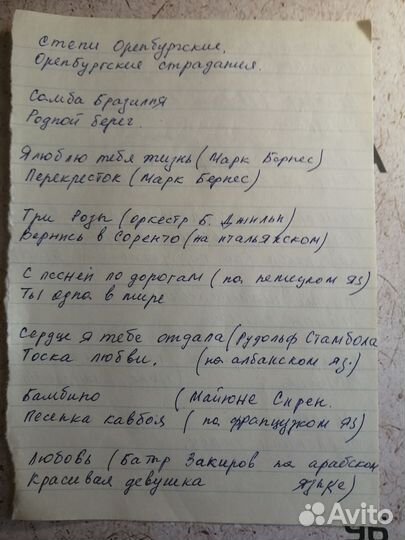 Степи Оренбургские.
Оренбургские страдания.
Самба Бразилия
Родной берег.
Я люблю тебя жизнь (Марк Бернес)
Перекресток (Марк Бернес)
Три Розы (оркестр Б. Джильи)
Вернись в Соренто (на итальянском)
С песней по дорогам (на немецком яз)
Ты одна в мире
Сердце я тебе отдала (Рудольф Стамбола
Тоска любви. (на албанском яз.)
Бамбино (Майюне Сирен.
Песенка кавбоя (на французком яз)
Любовь (Батыр Закиров на арабском
Красивая девушка языке)
Avito